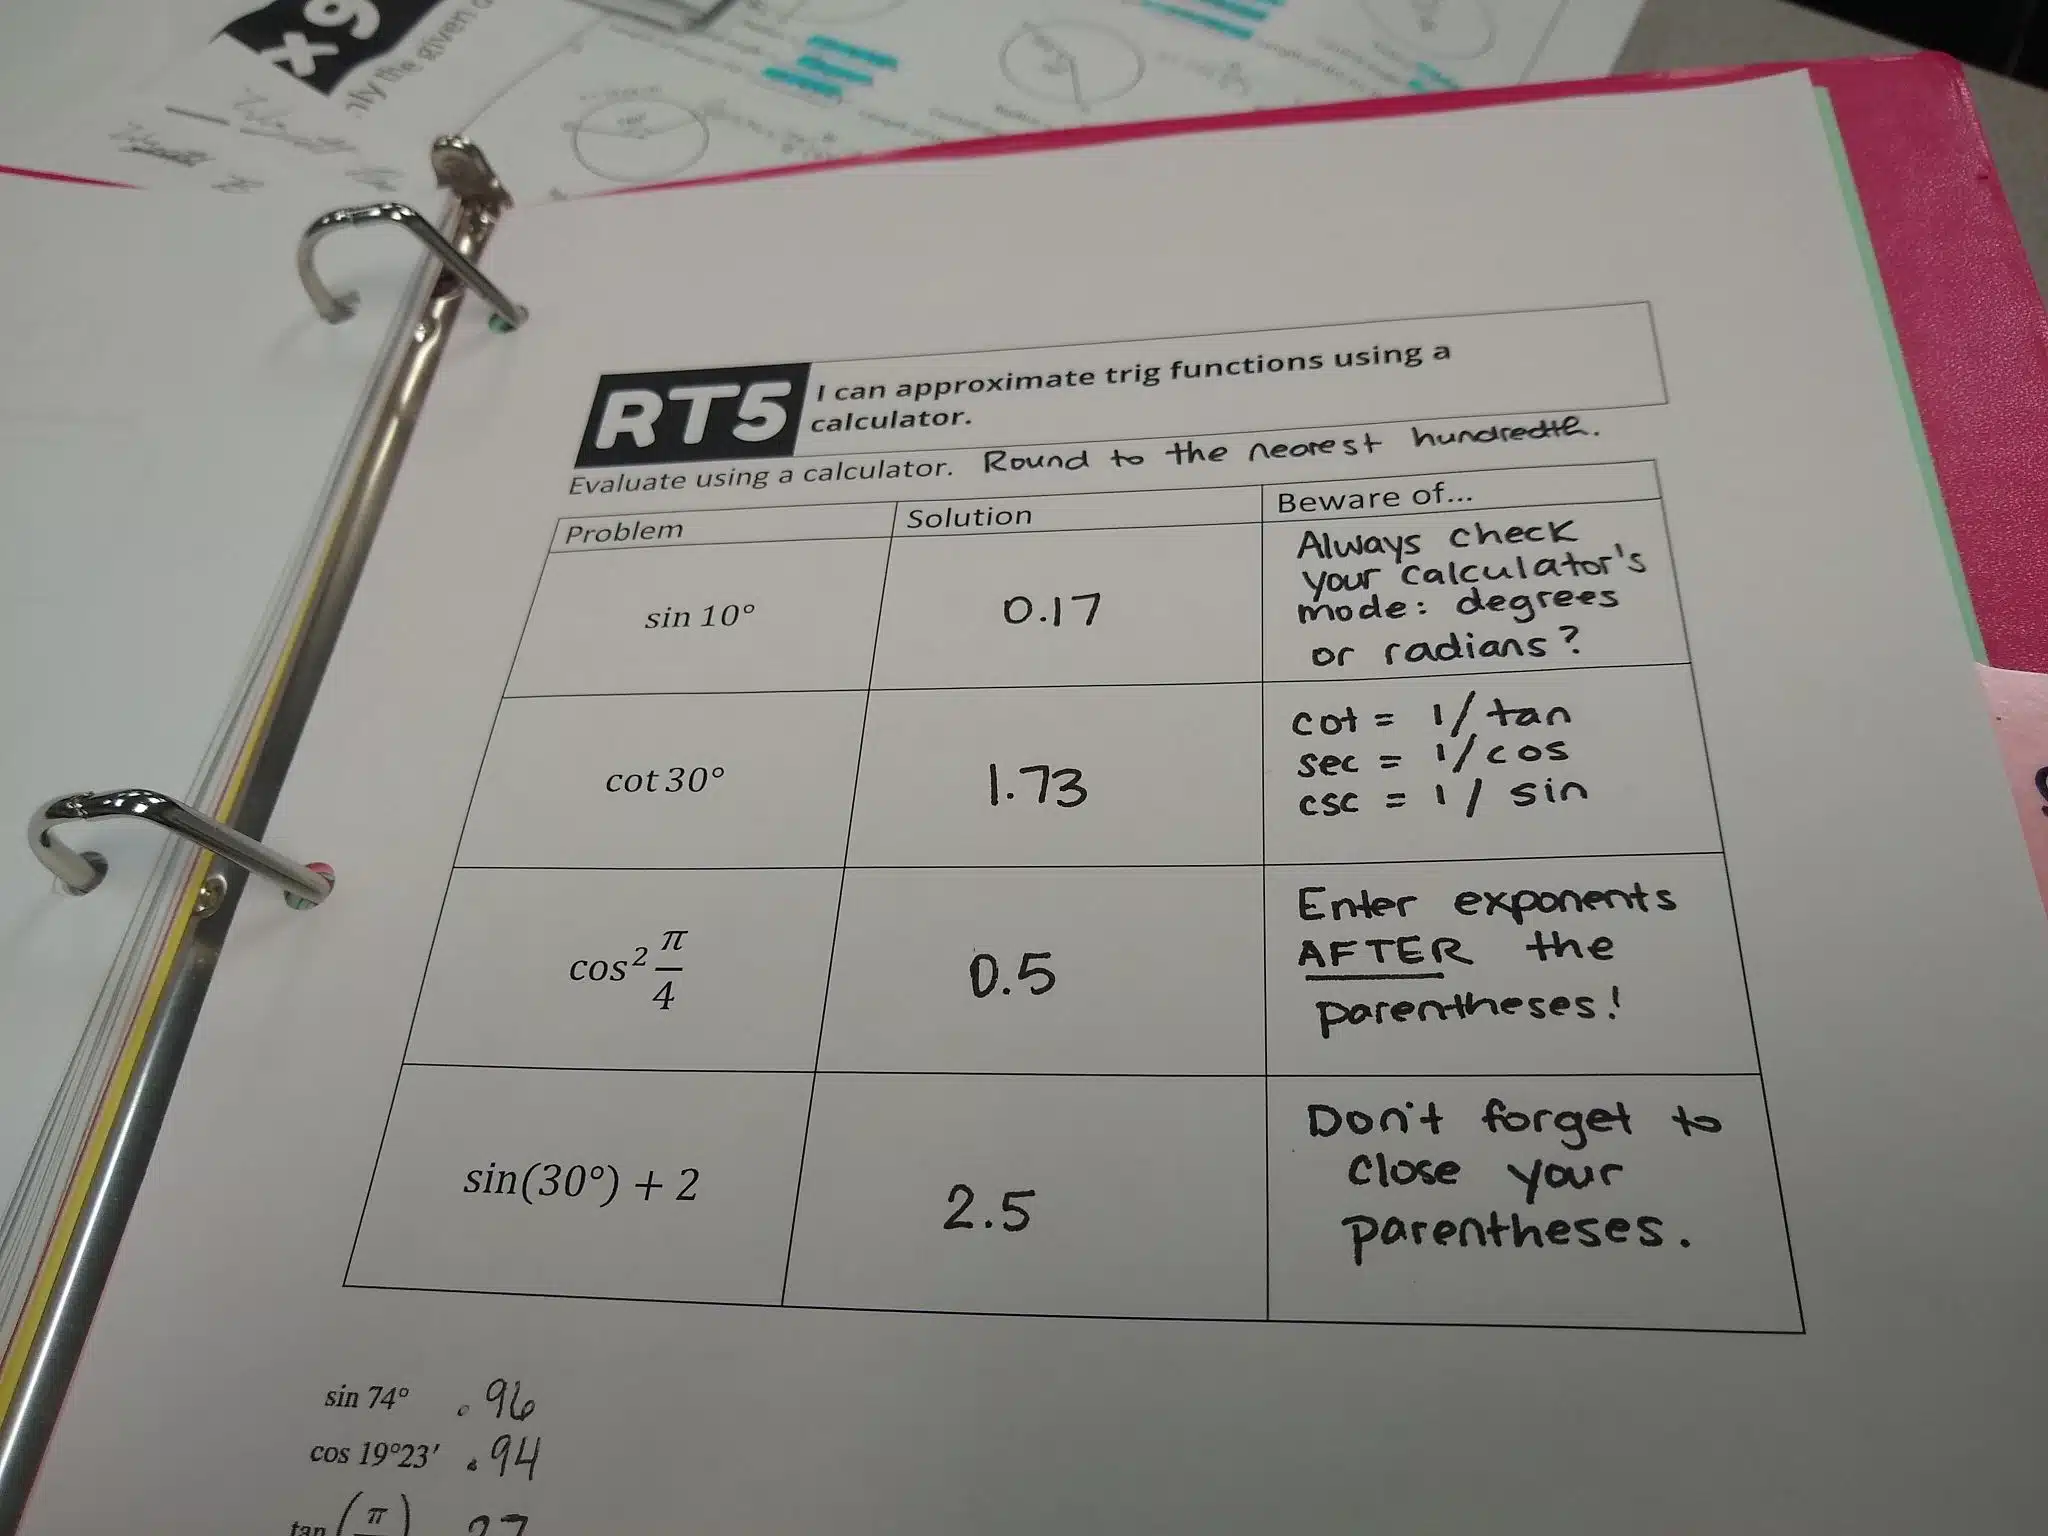 x9
ly the given
RT5
I can approximate trig functions using a
calculator.
Evaluate using a calculator. Round to the nearest hundredth.
Problem
Solution
Beware of...
sin 10°
0.17
Always check
your calculator's
mode: degrees
or radians?
cot 30°
1.73
cot = 1/tan
sec = 1/cos
csc = 1/ sin
cos² π/4
0.5
Enter exponents
AFTER the
parentheses!
sin(30°) + 2
2.5
Don't forget to
close your
parentheses.
sin 74° .96
cos 19°23' .94
tan (π